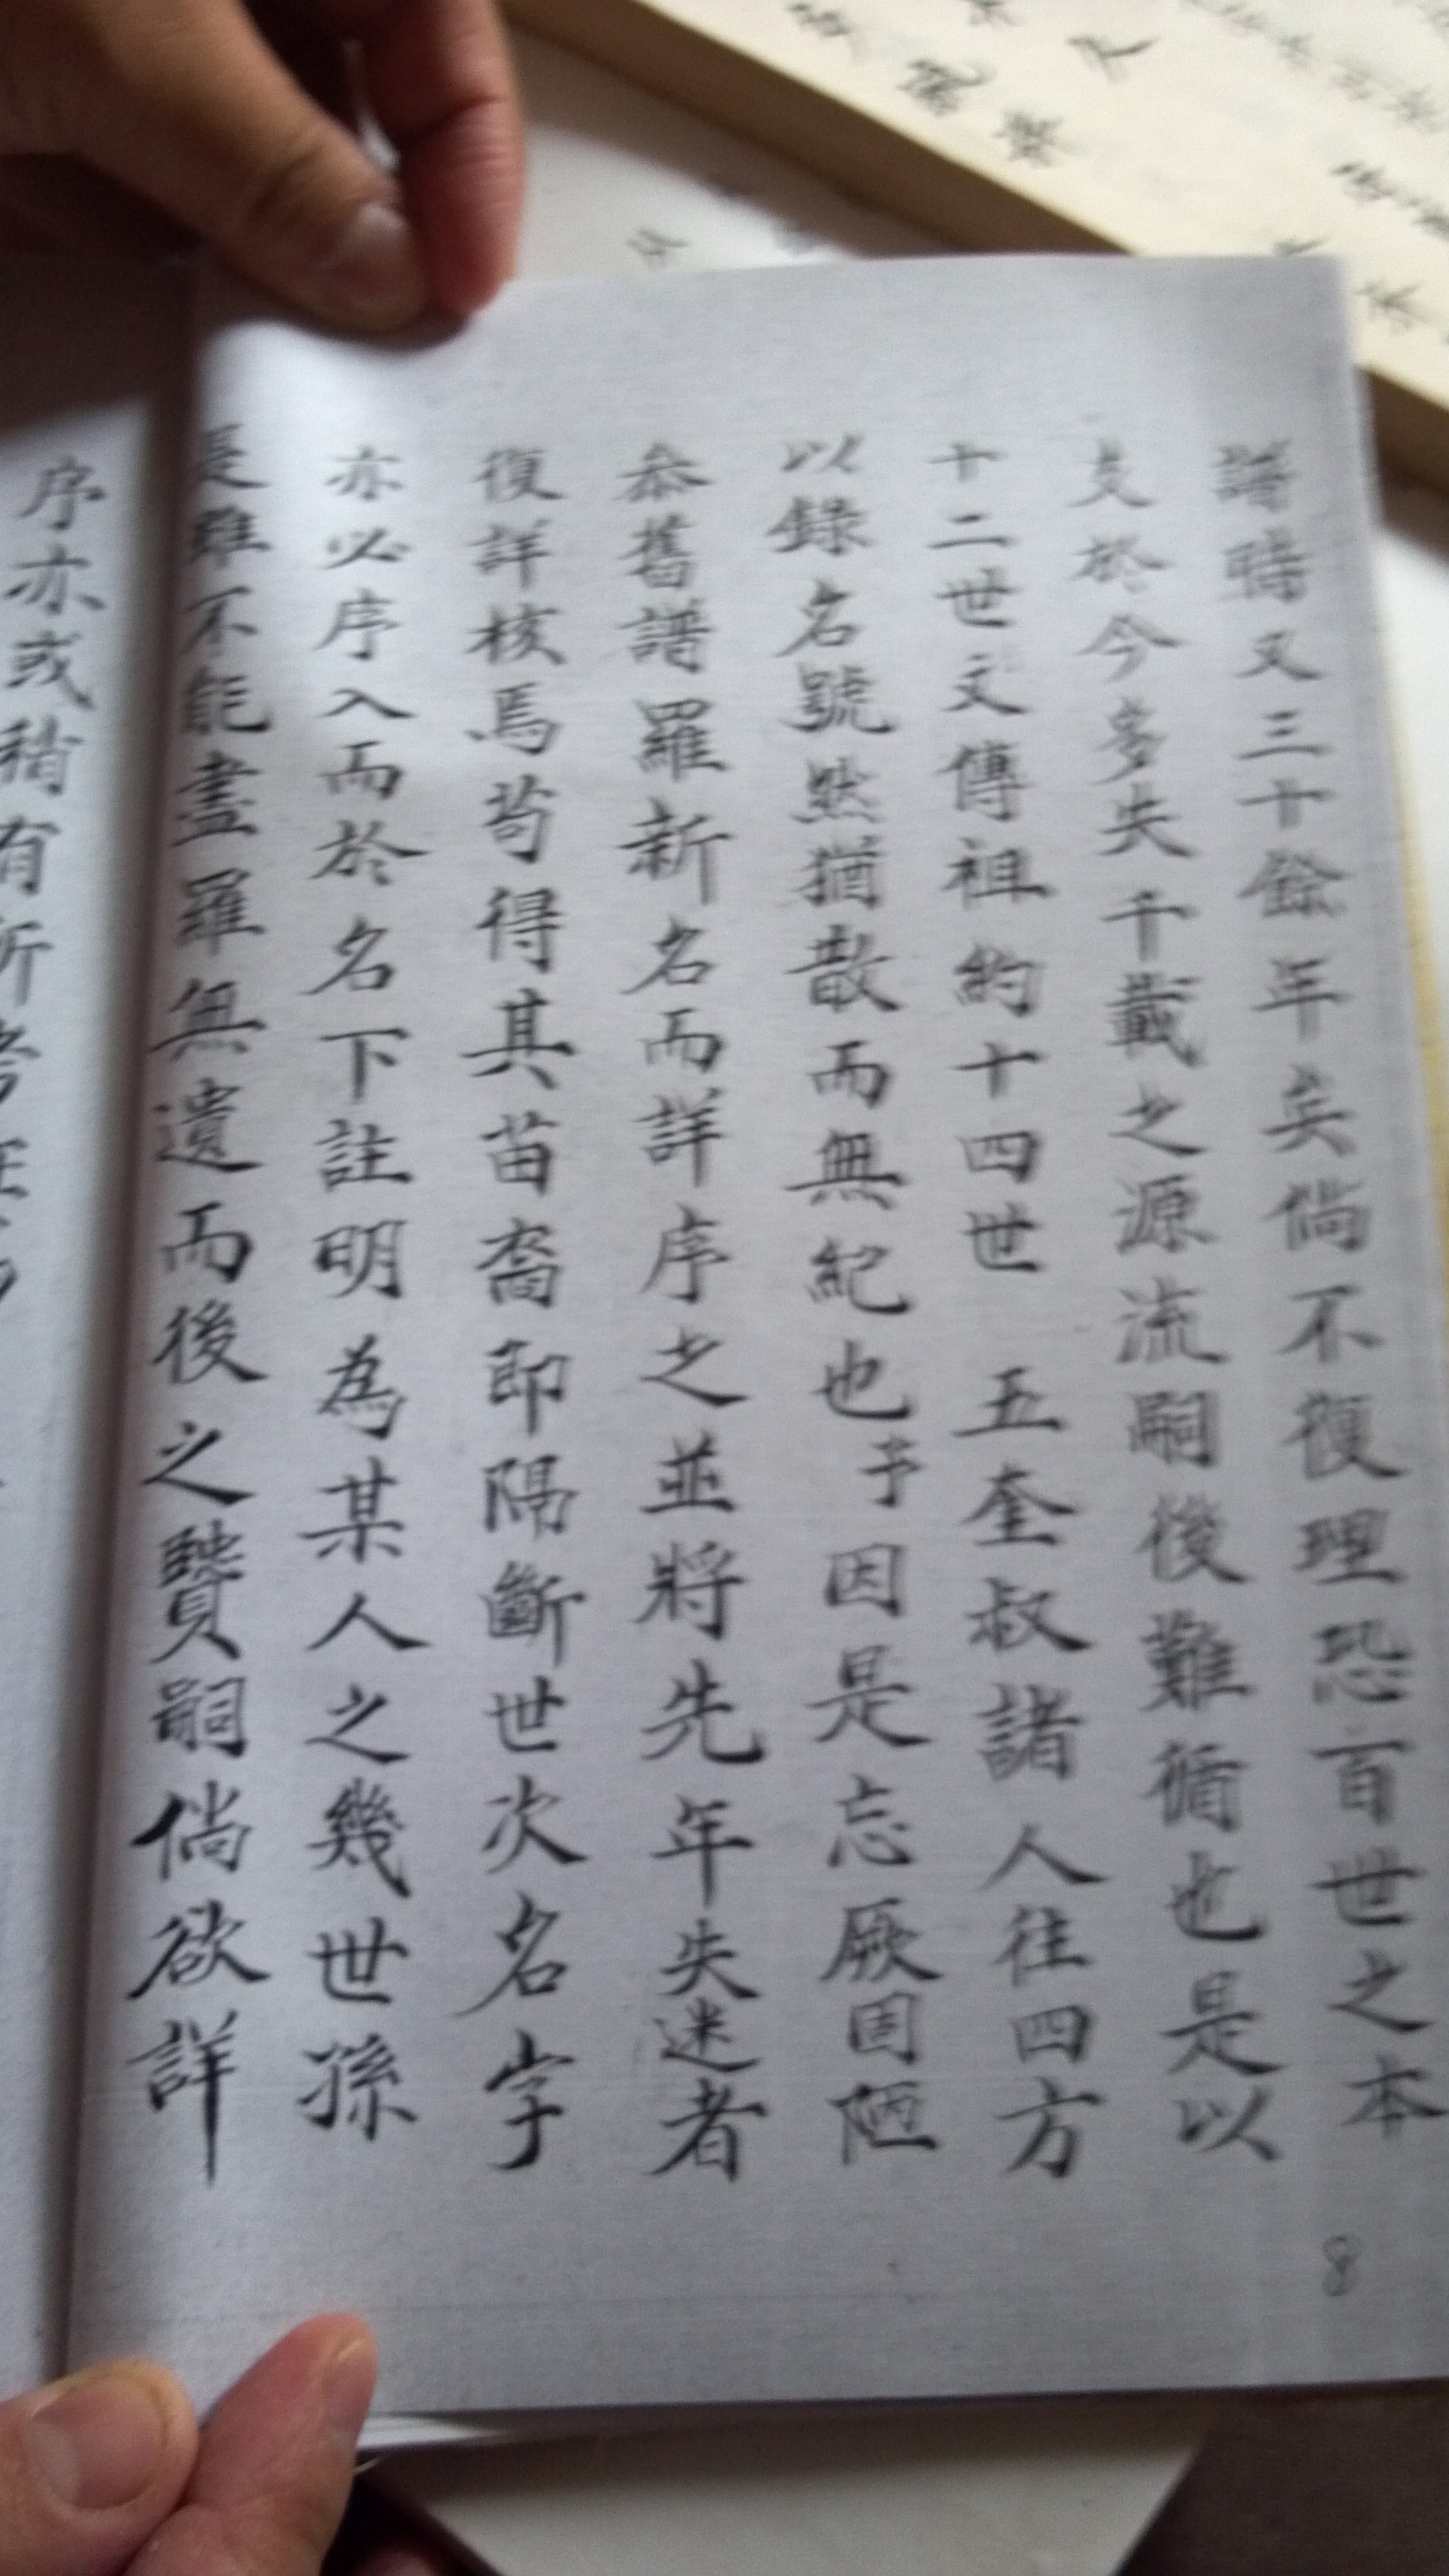 譜時又三十餘年矣倘不復理恐百世之本
支於今多失千載之源流嗣後難循也是以
十二世文傳祖約十四世五奎叔諸人往四方
以錄名號然猶散而無紀也予因是忘厥固陋
叅舊譜羅新名而詳序之並將先年失迷者
復詳核焉苟得其苗裔即隔斷世次名字
亦必序入而於名下註明為某人之幾世孫
是雖不能盡羅無遺而後之賢嗣倘欲詳
序亦或稍有所考
8